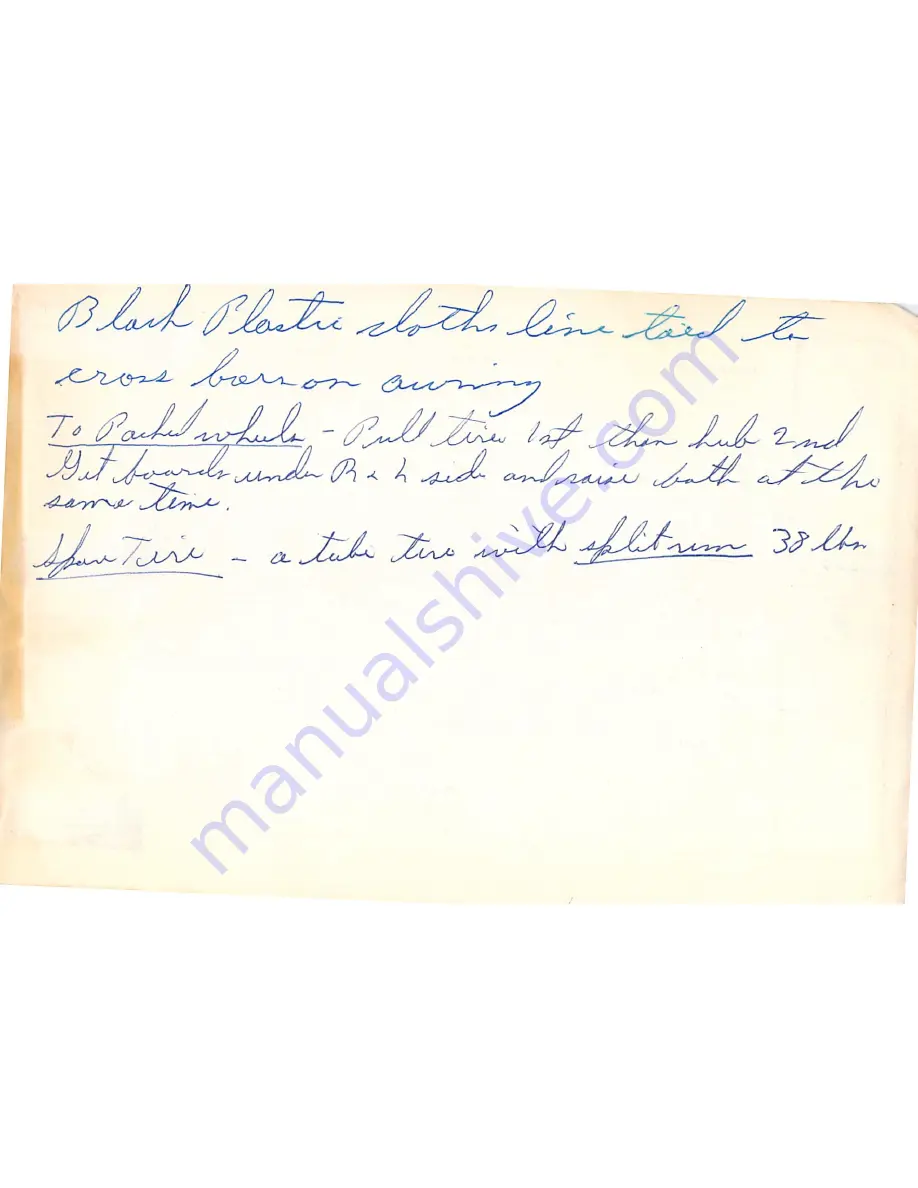 Black Plastic cloths line tied to
cross bars on awning
To Packed wheels - Pull tires 1st than hub 2nd
Get boards under R & L side and raise both at the
same time.
Spare Tire - a tube tire with split rim 38 lbs
manualshive.com